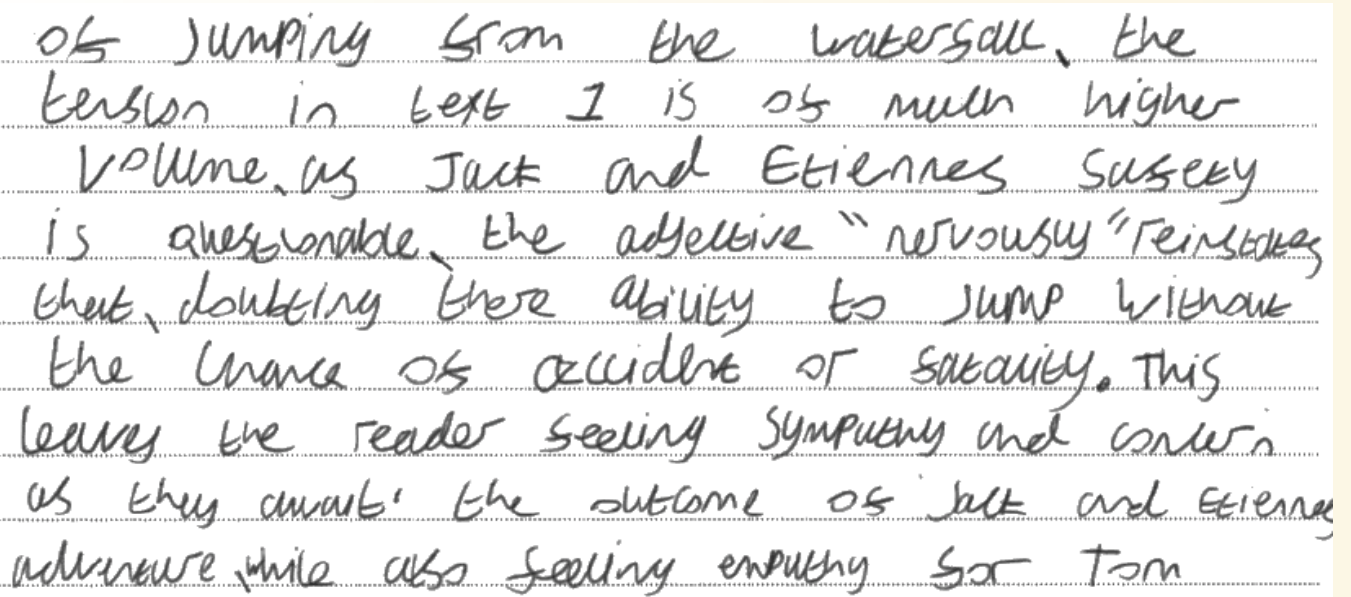 of jumping from the waterfall, the
tension in text 1 is of much higher
volume, as Jack and Etiennes saftey
is questionable, the adjective "nervously" reinstates
that, doubting there ability to jump without
the chance of accident or fatality. This
leaves the reader feeling sympathy and concern
as they await the outcome of Jack and Etiennes
adventure, while also feeling empathy for Tom